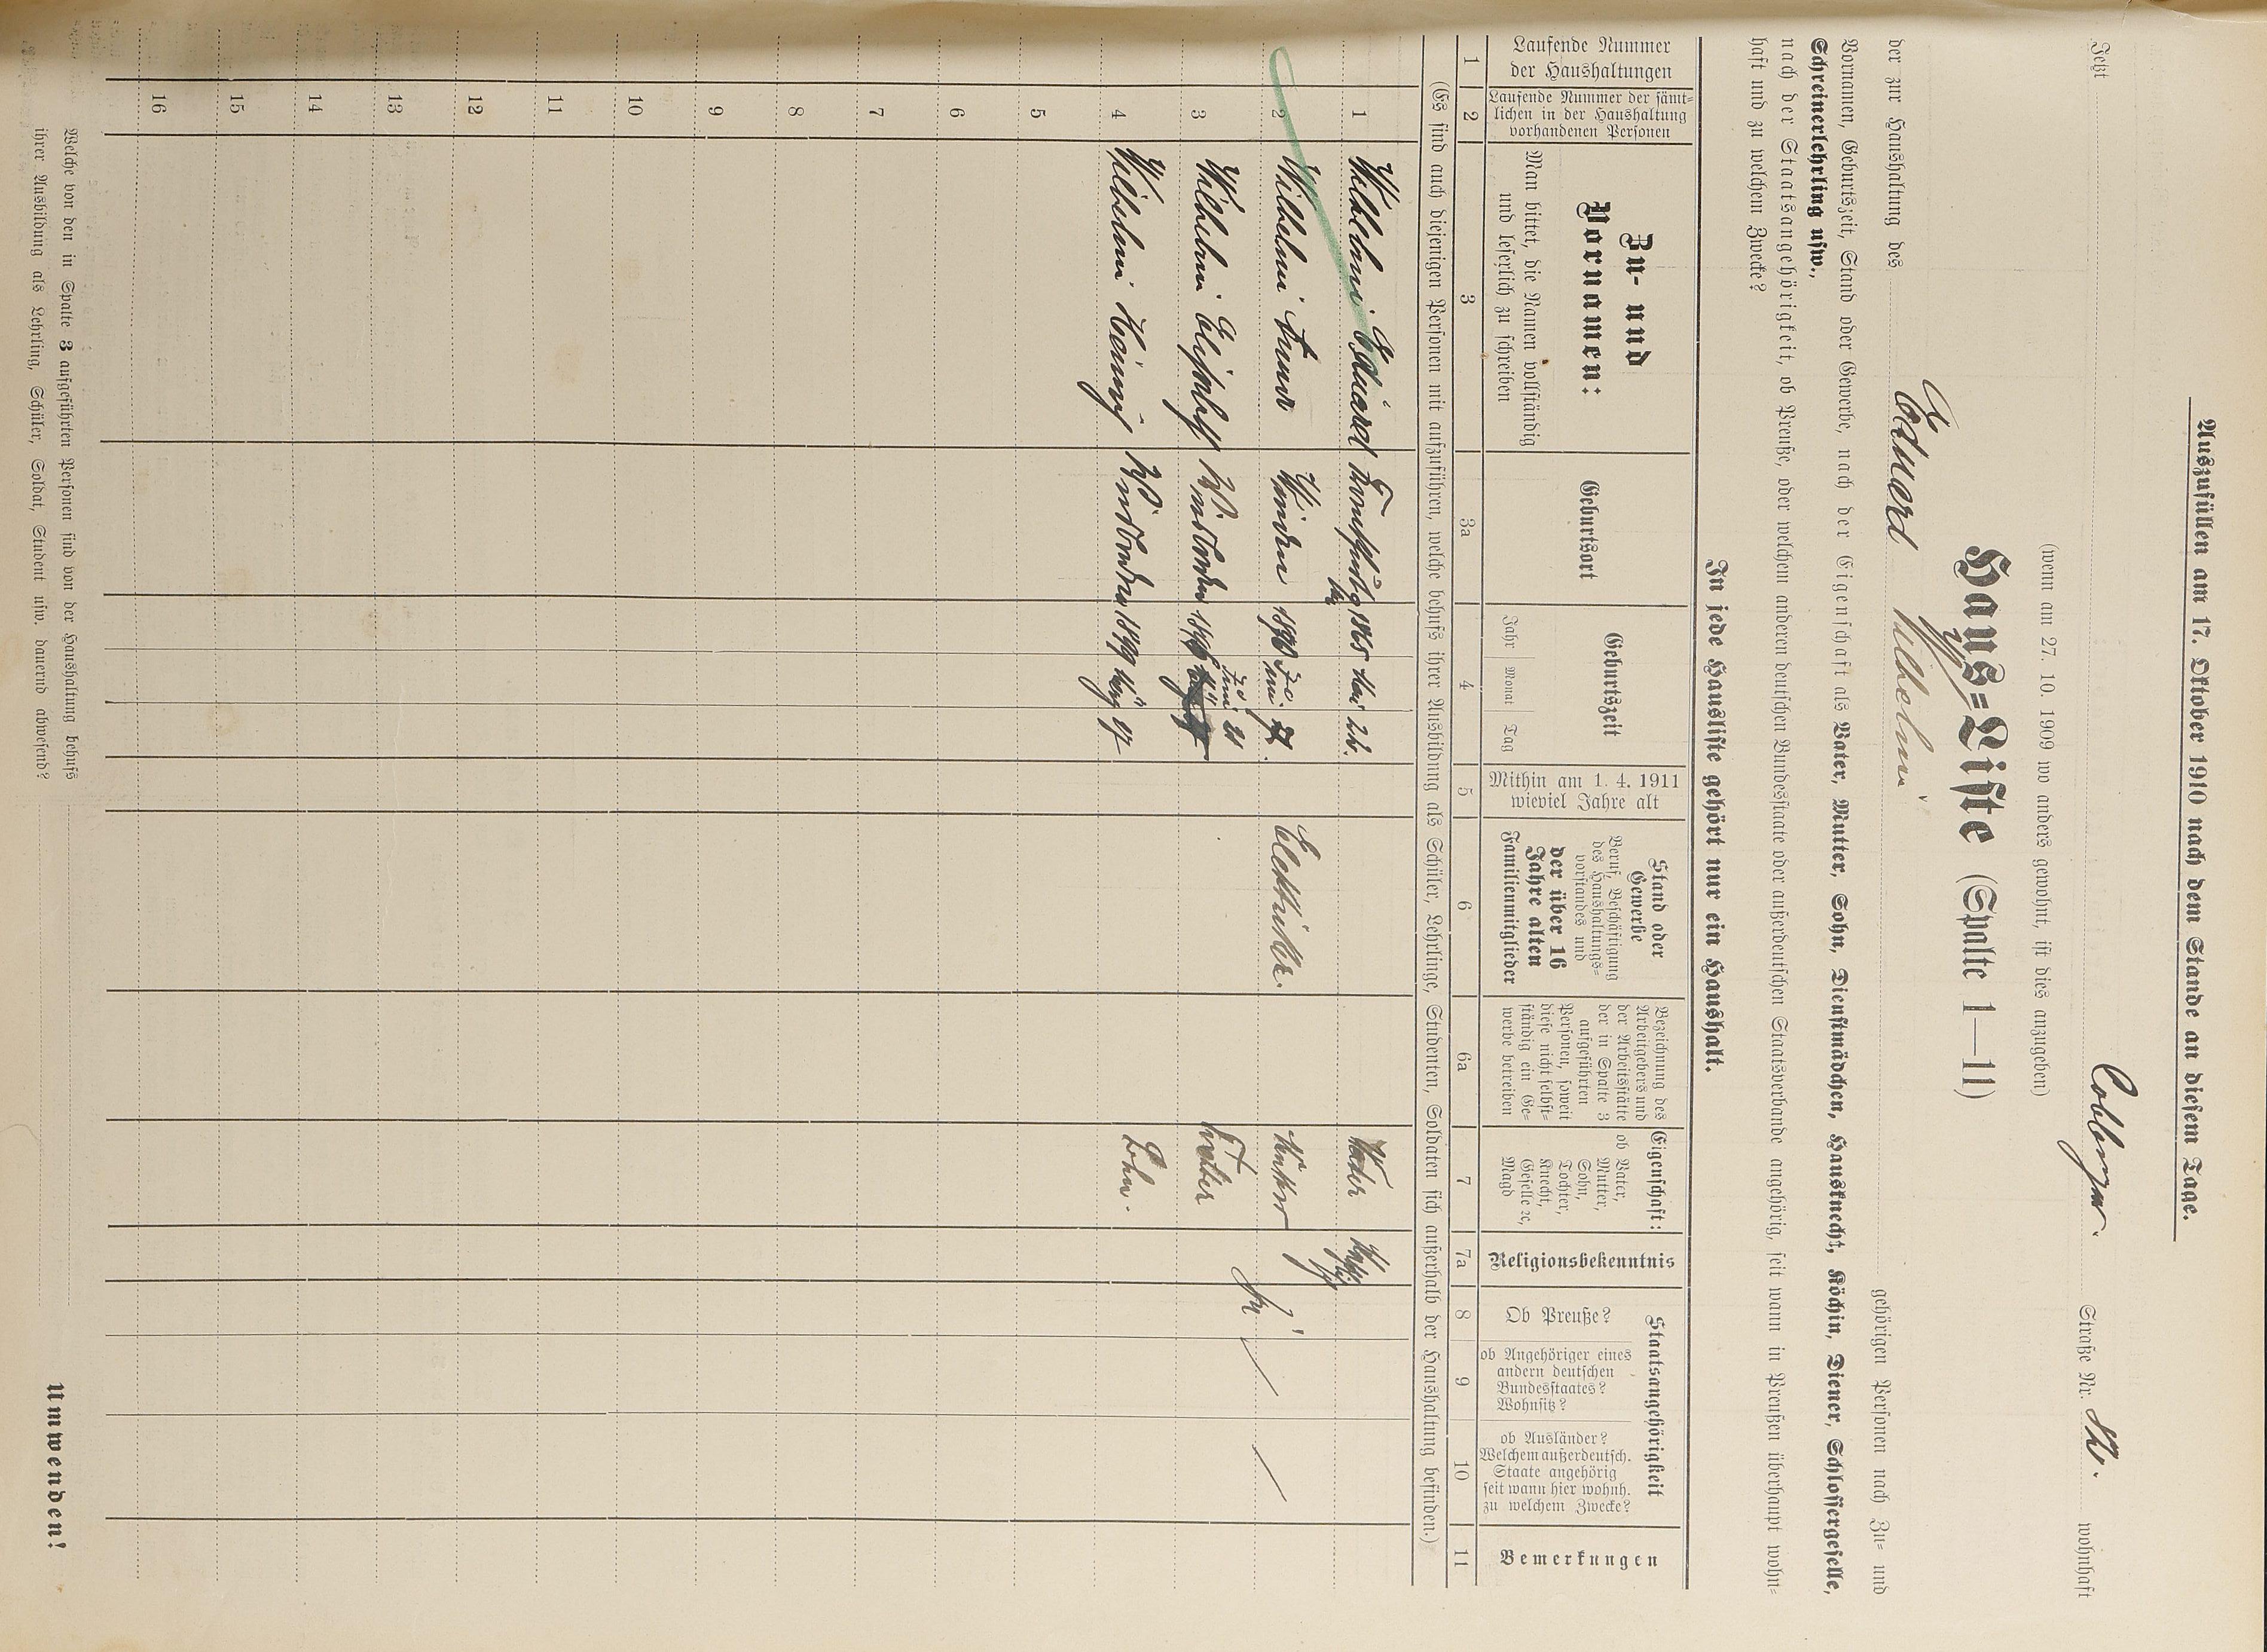 Auszufüllen am 17. Oktober 1910 nach dem Stande an diesem Tage.
Jetzt Straße Nr. wohnhaft
(wenn am 27. 10. 1909 wo anders gewohnt, ist dies anzugeben)
Haus=Liste (Spalte 1—11)
der zur Haushaltung des Eduard Wilhelmi gehörigen Personen nach Zu= und
Vornamen, Geburtszeit, Stand oder Gewerbe, nach der Eigenschaft als Vater, Mutter, Sohn, Dienstmädchen, Hausknecht, Köchin, Diener, Schlossergeselle,
Schreinerlehrling usw.,
nach der Staatsangehörigkeit, ob Preuße, oder welchem anderen deutschen Bundesstaate oder außerdeutschen Staatsverbande angehörig, seit wann in Preußen überhaupt wohn=
haft und zu welchem Zwecke?
In jede Hausliste gehört nur ein Haushalt.
Laufende Nummer
der Haushaltungen
Laufende Nummer der sämt=
lichen in der Haushaltung
vorhandenen Personen
Zu- und
Vornamen:
Man bittet, die Namen vollständig
und leserlich zu schreiben
Geburtsort
Geburtszeit
Jahr Monat Tag
Mithin am 1. 4. 1911
wieviel Jahre alt
Stand oder
Gewerbe
Beruf, Beschäftigung
des Haushaltungs=
vorstandes und
der über 16
Jahre alten
Familienmitglieder
Bezeichnung des
Arbeitgebers und
der Arbeitsstätte
der in Spalte 3
aufgeführten
Personen, soweit
diese nicht selbst=
ständig ein Ge=
werbe betreiben
Eigenschaft:
ob Vater,
Mutter,
Sohn,
Tochter,
Knecht,
Geselle ꝛc,
Magd
Religionsbekenntnis
Staatsangehörigkeit
Ob Preuße?
ob Angehöriger eines
andern deutschen
Bundesstaates?
Wohnsitz?
ob Ausländer?
Welchem außerdeutsch.
Staate angehörig
seit wann hier wohnh.
zu welchem Zwecke?
Bemerkungen
1 2 3 3a 4 5 6 6a 7 7a 8 9 10 11
(Es sind auch diejenigen Personen mit aufzuführen, welche behufs ihrer Ausbildung als Schüler, Lehrlinge, Studenten, Soldaten sich außerhalb der Haushaltung befinden.)
1 Wilhelmi Eduard 1865 Mai 26. Vater
2 Wilhelmi Elektriker. Mutter Ja
3 Wilhelmi Elisabeth Wiesbaden Juni 21 Tochter
4 Wilhelmi Wiesbaden 1899 17 Sohn.
5
6
7
8
9
10
11
12
13
14
15
16
Welche von den in Spalte 3 aufgeführten Personen sind von der Haushaltung behufs
ihrer Ausbildung als Lehrling, Schüler, Soldat, Student usw. dauernd abwesend?
Umwenden!